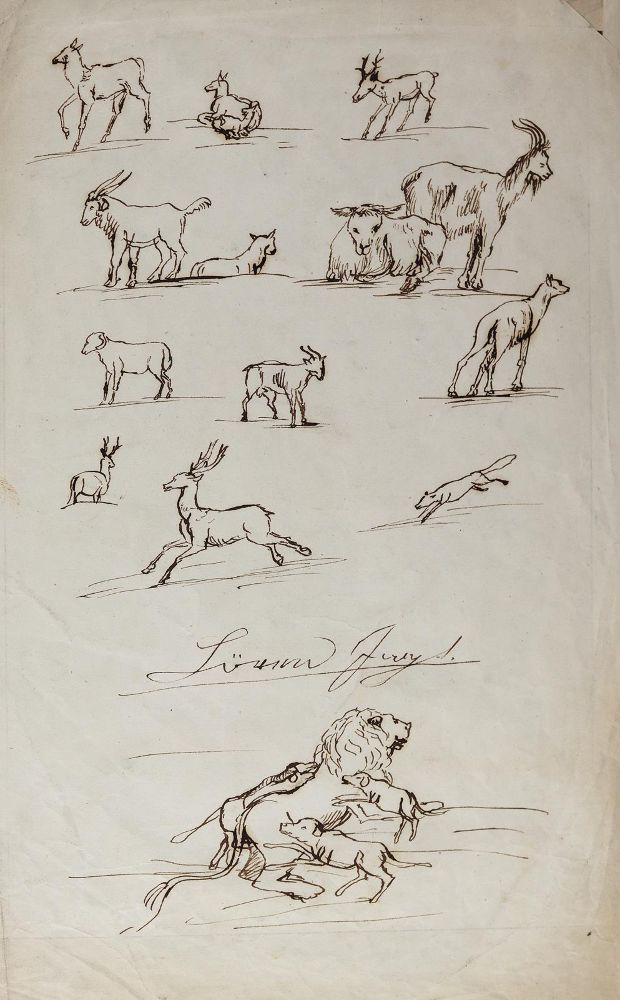 Löwen Jagd.